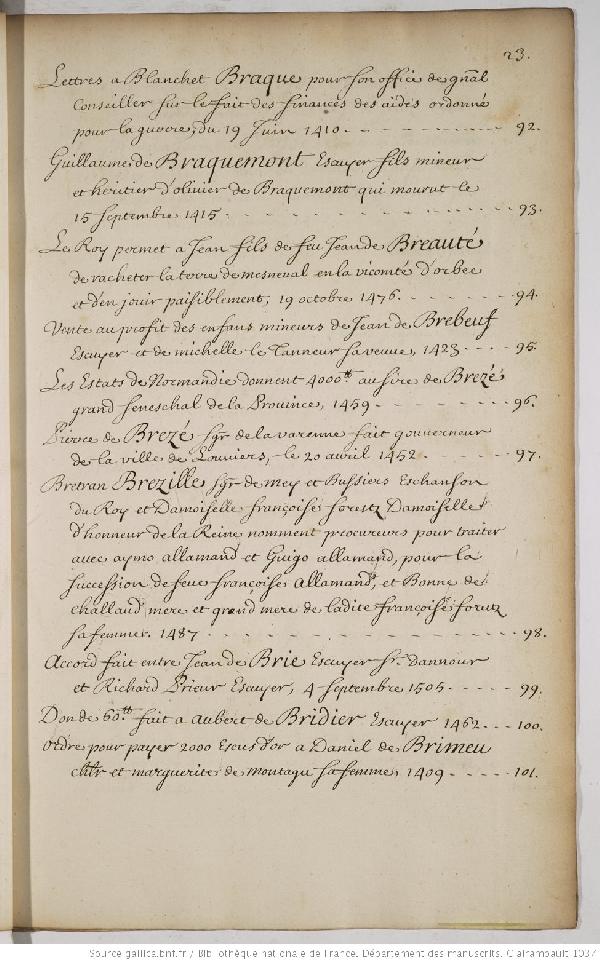 23.
Lettres a Blanchet Braque pour son office de gñal
Conseiller sur le fait des finances des aides ordonné
pour la guerre, du 19 Juin 1410. - - - - - - - - - 92.
Guillaume de Braquemont Escuyer fils mineur
et heritier d'olivier de Braquemont qui mourut le
15 septembre 1415. - - - - - - - - - - - - 93.
Le Roy permet a Jean fils de feu Jean de Breauté
de racheter la terre de mesneval en la vicomté d'orbec
et d'en jouir paisiblement, 19 octobre 1476. - - - - - - 94.
Vente au profit des enfans mineurs de Jean de Brebeuf
Escuyer et de michelle le Tanneur sa veuve, 1423 - - - - 95.
Les Estats de Normandie donnent 4000tt au sire de Brezé
grand seneschal de la Province, 1459 - - - - - - - 96.
Pierre de Brezé sgr de la varenne fait gouverneur
de la ville de Louviers, le 20 avril 1452 - - - - - - 97.
Bretran Brezille sgr de mey et Bussiers Eschanson
du Roy et Damoiselle françoise foretz Damoiselle
d'honneur de la Reine nomment procureurs pour traiter
avec aymo allamand et Guigo allamand, pour la
succession de feue françoise Allamand, et Bonne de
challand mere et grand mere de ladite françoise foretz
sa femme. 1487 - - - - - - - - - - - - - 98.
Accord fait entre Jean de Brie Escuyer sr. dannour
et Richard Prieur Escuyer, 4 septembre 1505. - - - - - 99.
Don de 60.tt fait a aubert de Bridier Escuyer 1462 - - - 100.
ordre pour payer 2000 Escus d'or a Daniel de Brimeu
chlr et marguerite de montagu sa femme, 1409 - - - - - 101.
Source gallica.bnf.fr / Bibliothèque nationale de France. Département des manuscrits. Clairambault 1037